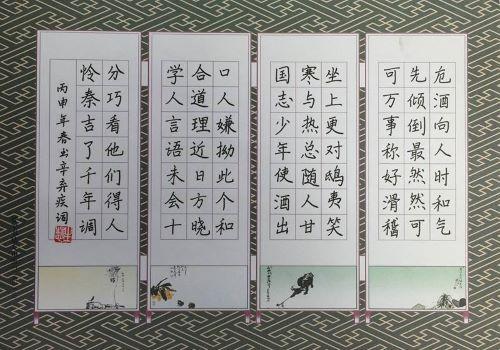 卮酒向人时和气
先倾倒最然然可
可万事称好滑稽
坐上更对鸱夷笑
寒与热总随人甘
国志少年使酒出
口人嫌拗此个和
合道理近日方晓
学人言语未会十
分巧看他们得人
怜秦吉了千年调
丙申年春出辛弃疾词